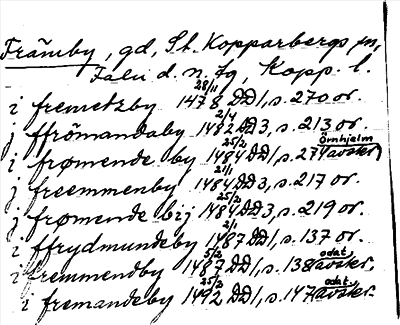 Främby, gd, St. Kopparbergs sn,
Falu d. n. fg, Kopp. l.
i fremetzby 28/11 1478 DD1, s. 270 or.
j ffrömandaby 2/4 1482 DD3, s. 213 or.
i frømende by 25/2 1484 DD1, s. 274 Örnhjelm avskr.
j freemmenby 21/1 1484 DD3, s. 217 or.
j frømende bij 25/2 1484 DD3, s. 219 or.
i ffrydmundeby 2/1 1487 DD1, s. 137 or.
i fremmendby 5/2 1487 DD1, s. 138 odat. avskr.
i fremandeby 25/2 1492 DD1, s. 147 odat. avskr.